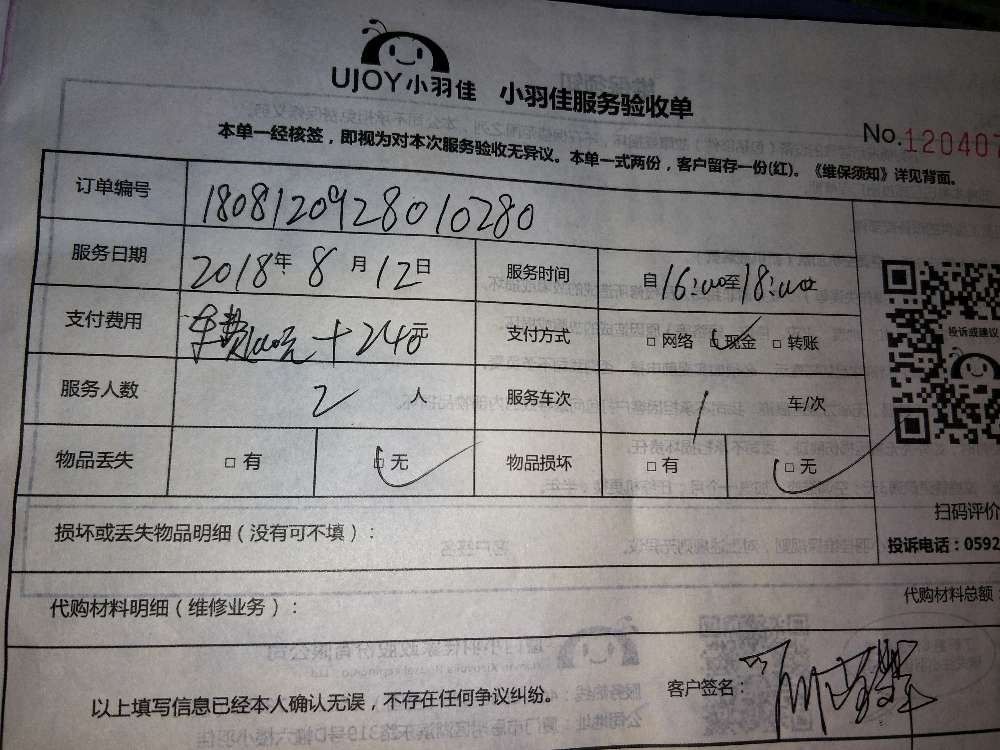 UJOY小羽佳 小羽佳服务验收单
No.120407
本单一经核签，即视为对本次服务验收无异议。本单一式两份，客户留存一份(红)。《维保须知》详见背面。
订单编号 1808120928010280
服务日期 2018年 8月 12日 服务时间 自16:00至18:00止
支付费用 车费 元+240元 支付方式 □网络 □现金 □转账
服务人数 2 人 服务车次 1 车/次
物品丢失 □有 □无 物品损坏 □有 □无
投诉或建议
扫码评价
投诉电话：0592
损坏或丢失物品明细（没有可不填）：
代购材料明细（维修业务）：
代购材料总额：
以上填写信息已经本人确认无误，不存在任何争议纠纷。 客户签名：